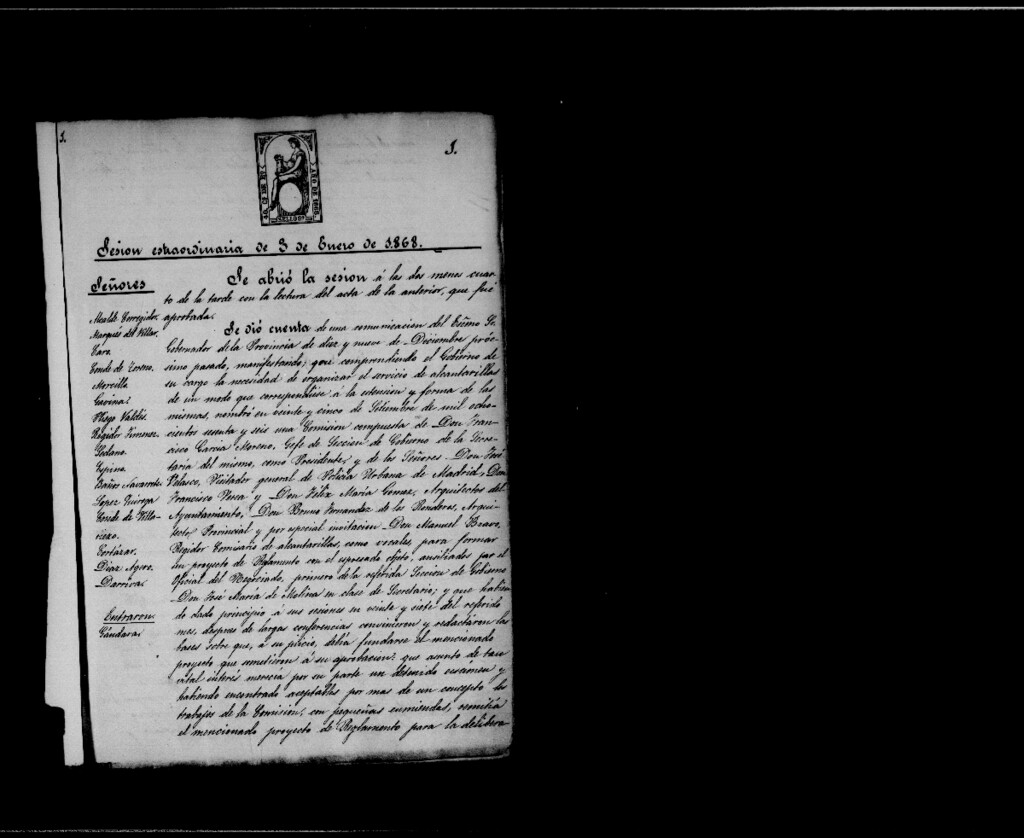 1.
1.
AÑO DE 1868
Sesion estraordinaria de 3 de Enero de 1868.
Señores
Alcalde Corregidor.
Marqués del Villar.
Caro.
Conde de
Morcillo.
Gavina?
Riego Valdés.
Regidor Jimenez.
Sedano.
Espino.
Baños Navarrete
Lopez Quiroga
Conde de Villa-
riezo.
Cortázar.
Diaz Agero.
Darriva.
Entraron.
Gándara
Se abrió la sesion á las dos menos cuar-
to de la tarde con la lectura del acta de la anterior, que fué
aprobada.
Se dió cuenta de una comunicacion del Escmo Sr.
Gobernador de la Provincia de diez y nueve de Diciembre prócs-
simo pasado, manifestando; que comprendiendo el Gobierno de
su cargo la necesidad de organizar el servicio de alcantarillas
de un modo que correspondiese á la estension y forma de las
mismas, nombró en veinte y cinco de Setiembre de mil ocho-
cientos sesenta y seis una Comision compuesta de Don Fran-
cisco Garcia Moreno, Gefe de Seccion de Gobierno de la Secre-
taría del mismo, como Presidente, y de los Señores Don José
Velasco, Visitador general de Policía Urbana de Madrid, Don
Francisco Verea y Don Félix María Gomez, Arquitectos del
Ayuntamiento, Don Bruno Fernandez de los Ronderos, Arqui-
tecto Provincial y por especial invitacion Don Manuel Bravo,
Regidor Comisario de alcantarillas, como vocales, para formar
un proyecto de Reglamento con el espresado objeto, auxiliados por el
Oficial del Negociado, primero de la referida Seccion de Gobierno
Don José María de Molina en clase de Secretario; y que habien-
do dado principio á sus sesiones en veinte y siete del referido
mes, despues de largas conferencias convinieron y redactaron las
bases sobre que, á su juicio, debia fundarse el mencionado
proyecto que sometieron á su aprobacion: que asunto de tan
vital interés merecia por su parte un detenido ecsámen y
habiendo encontrado aceptables por mas de un concepto los
trabajos de la Comision, con pequeñas enmiendas, remitia
el mencionado proyecto de Reglamento para la delibera-